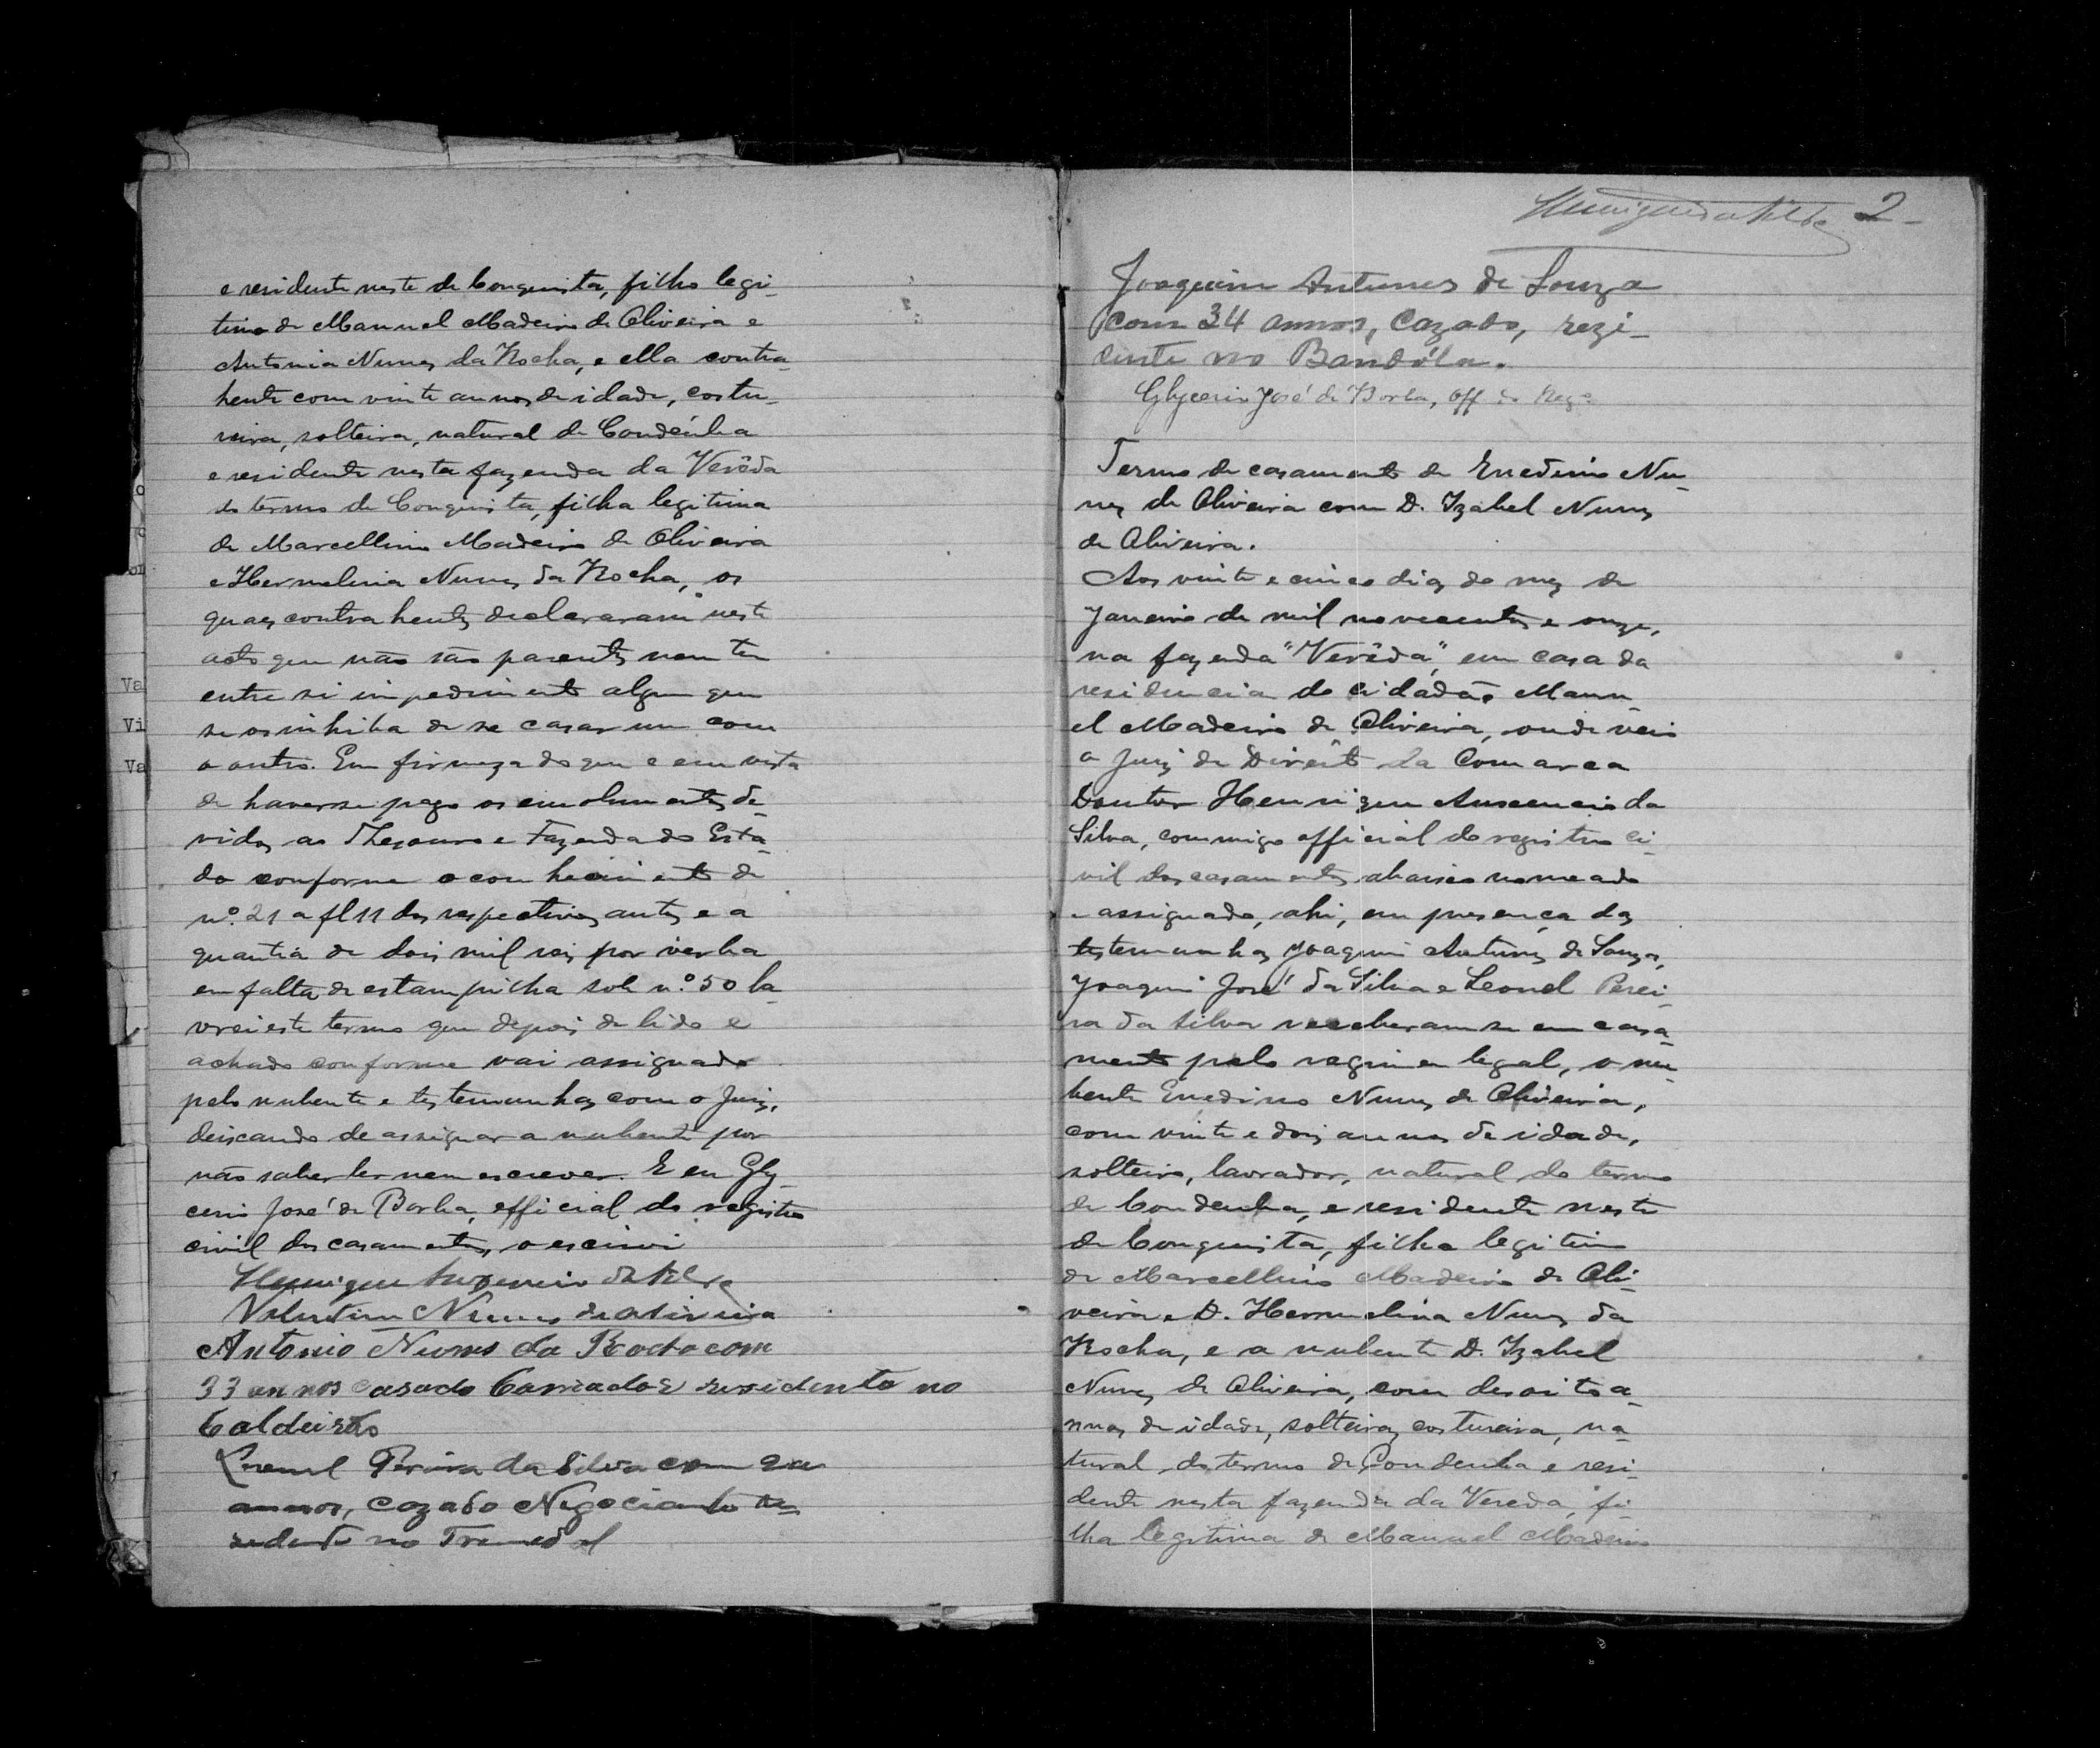 e residente neste de Conquista, filho legi-
timo de Manuel Madeira de Oliveira e
Antonia Nunes da Rocha, e ella contra-
hente com vinte annos de idade, costu-
reira, solteira, natural de Condeúba
e residente nesta fazenda da Verêda
do termo de Conquista, filha legitima
de Marcellino Madeiro de Oliveira
e Hermelina Nunes da Rocha, os
quaes contrahentes declararam neste
acto que não são parentes nem tem
entre si impedimento algum que
se os inhiba de se casar um com
o outro. Em firmeza do que e em vista
de haverse pago os emolumentos de-
vidos ao Thesouro e Fazenda do Esta-
do conforme o conhecimento de
nº. 21 a fl 11 dos respectivos autos e a
quantia de dois mil reis por verba
em falta de estampilha sob n.º 50 la-
vrei este termo que depois de lido e
achado conforme vai assignado
pelo nubente e testemunhas com o Juiz,
deixando de assignar a nubente por
não saber ler nem escrever. E eu Gly-
cerio José de Borba, official do registro
civil dos casamentos, o escrevi
Henrique da Silva
Valentim Nunes de Oliveira
Antonio Nunes da Rocha com
33 annos casado residente no
Caldeirão
Leonel Pereira da Silva com
annos, cazado Negociante re-
zidente no Tremedal
Va
Vi
Va
2-
Joaquim Antunes de Souza
com 34 annos, Cazado, rezi-
dente no Bandóla.
Glycerio José de Borba, Off do Regº
Termo de casamento de Enedino Nu-
nes de Oliveira com D. Izabel Nunes
de Oliveira.
Aos vinte e cinco dias do mez de
Janeiro de mil novecentos e onze,
na fazenda "Verêda", em casa da
residencia do cidadão Manu-
el Madeiro de Oliveira, onde veio
o Juiz de Direito da Comarca
Doutor Henrique Auxencio da
Silva, commigo official do registro ci-
vil dos casamentos abaixo nomeado
e assignado, ahi, em presença das
testemunhas Joaquim Antunes de Souza,
Joaquim José da Silva e Leonel Perei-
ra da Silva receberam-se em casa-
mento pelo regimen legal, o nu-
bente Enedino Nunes de Oliveira,
com vinte e dois annos de idade,
solteiro, lavrador, natural do termo
de Condeuba, e residente neste
de Conquista, filho legitimo
de Marcellino Madeiro de Oli-
veira e D. Hermelina Nunes da
Rocha, e a nubente D. Izabel
Nunes de Oliveira, com desoito a-
nnos de idade, solteira, costureira, na-
tural do termo de Condeuba e resi-
dente nesta fazenda da Vereda, fi-
lha legitima de Manuel Madeiro